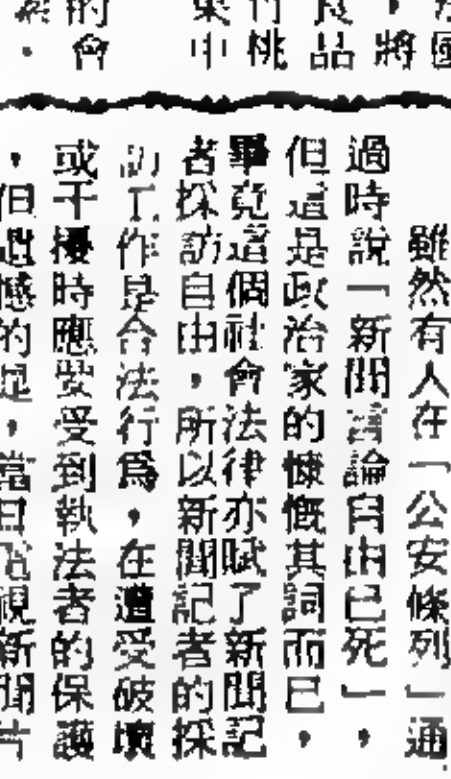 雖然有人在「公安條列」通
過時說「新聞言論自由已死」，
但這是政治家的慷慨其詞而已，
畢竟這個社會法律亦賦了新聞記
者採訪自由，所以新聞記者的採
訪工作是合法行爲，在遭受破壞
或干擾時應受受到執法者的保護
，但遺憾的是，當日電視新聞片
，將
良品
竹桃
東中
的會